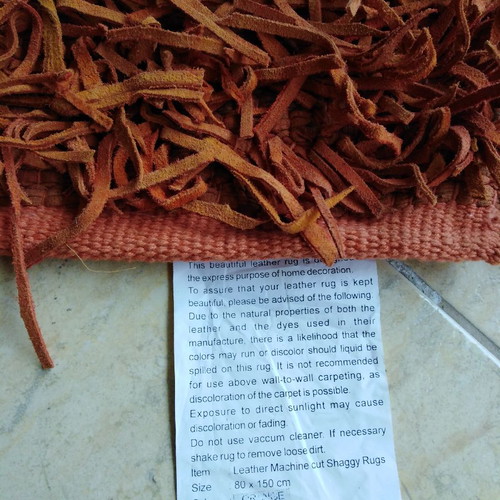 This beautiful leather rug is
the express purpose of home decoration.
To assure that your leather rug is kept
beautiful, please be advised of the following.
Due to the natural properties of both the
leather and the dyes used in their
manufacture, there is a likelihood that the
colors may run or discolor should liquid be
spilled on this rug. It is not recommended
for use above wall-to-wall carpeting, as
discoloration of the carpet is possible.
Exposure to direct sunlight may cause
discoloration or fading.
Do not use vaccum cleaner. If necessary
shake rug to remove loose dirt.
Item : Leather Machine cut Shaggy Rugs
Size : 80 x 150 cm